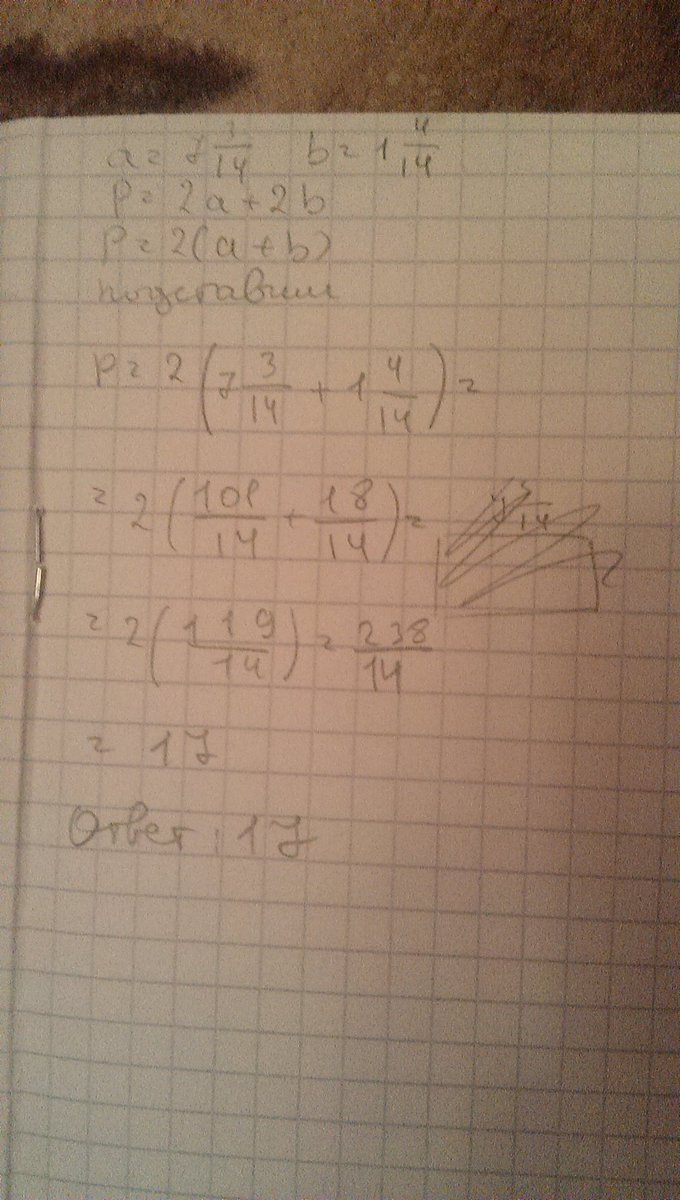 a = 7 3/14 b = 1 4/14
P = 2a + 2b
P = 2(a + b)
подставим
P = 2 (7 3/14 + 1 4/14) =
= 2 (101/14 + 18/14) =
= 2 (119/14) = 238/14
= 17
Ответ: 17